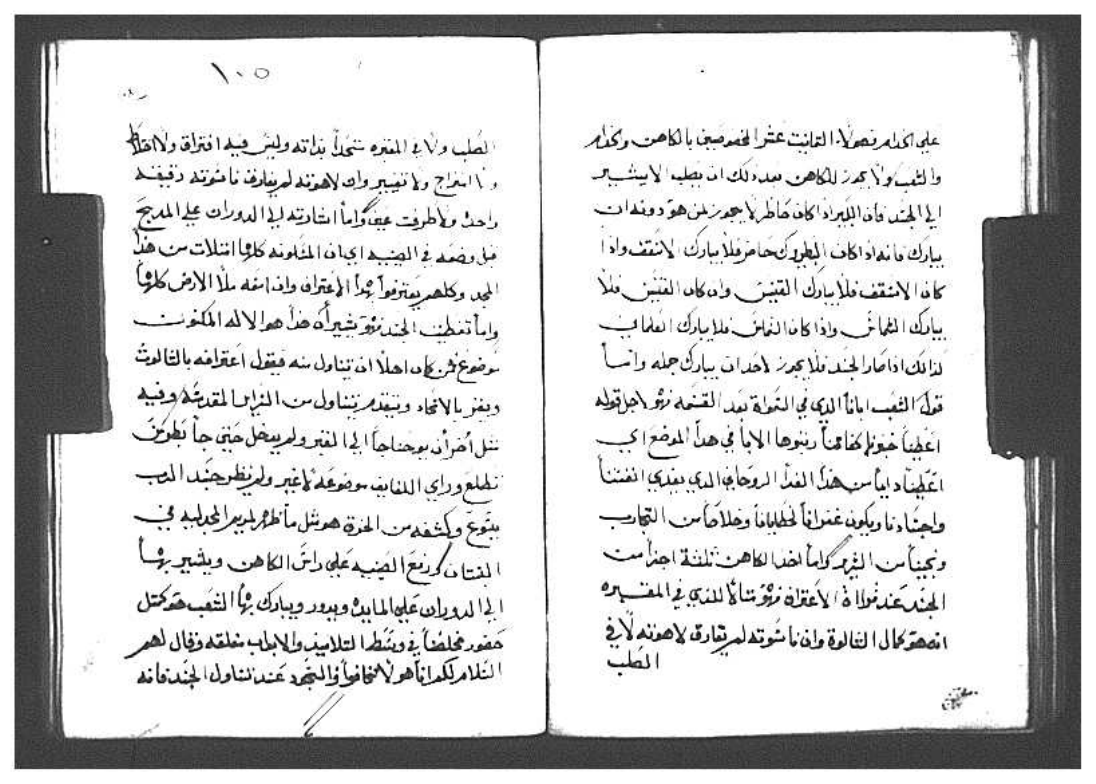 علي الخدام فصولاً. الثمانيت عشر المخصوصين بالكاهن والخدام
والشعب ولا يجوز للكاهن بعد ذلك ان يصلب الا يشير
الي الجسد فان الكبير اذا كان حاظر لا يجوز لمن هو دونه ان
يبارك فانه اذا كان البطريرك حاضر فلا يبارك الاسقف واذا
كان الاسقف فلا يبارك القسيس وان كان القسيس فلا
يبارك الشماس واذا كان الشماس فلا يبارك العلماني
لذلك اذا صار الجسد فلا يجوز لاحد ان يبارك جمله واما
قول الشعب ابانا الذي في السموات بعد القسمه فهو لاجل قوله
اعطينا خبزنا كفافنا رتبوها الابا في هذا الموضع اي
اعطينا دايما من هذا الغدا الروحاني الذي يغدي انفسنا
واجسادنا ويكون غفراناً لخطايانا وخلاصاً من التجارب
وبجينا من الشرير واما اخد الكاهن ثلثة اجزا من
الجسد عند قولة الاعتراف فهو مثالاً للذي في المقبره
انه هو كمال الثالوت وان ناسوته لم تفارق لاهوته لا في
الصلب
١٠٥
الصلب ولا في المقبره متحداً بذاته وليس فيه افتراق ولا اختلاط
ولا امتزاج ولا تغيير وان لاهوته لم يفارق ناسوته دقيقه
واحده ولا طرفت عين واما اشارته الي الدوران علي المدبح
قبل وضعه في الصينيه اي ان المسكونه كلها امتلات من هذا
المجد وكلهم يعترفوا بهذا الاعتراف وان اسمه ملا الارض كلها
واما تغطيت الجسد فهو يشير ان هذا هو الاله المكنون
موضوع فمن كان اهلاً ان يتناول منه فيقول اعترافه بالثالوت
ويقر بالاتحاد ويتقدم يتناول من السراير المقدسه وفيه
مثل أخر أن يوحنا جا الي القبر ولم يدخل حتي جا بطرس
تطلع وراي اللفايف موضوعه لا غير ولم ينظر جسد الرب
يسوع وكشفه من الحزة هو مثل ما ظهر لمريم المجدليه في
البستان ورفع الصينيه علي راس الكاهن ويشير بها
الي الدوران علي المايده ويدور ويبارك بها الشعب هو كمثل
حضور مخلصنا في وسط التلاميد والابواب مغلقه وقال لهم
السلام لكم انا هو لا تخافوا والسجود عند تناول الجسد فانه